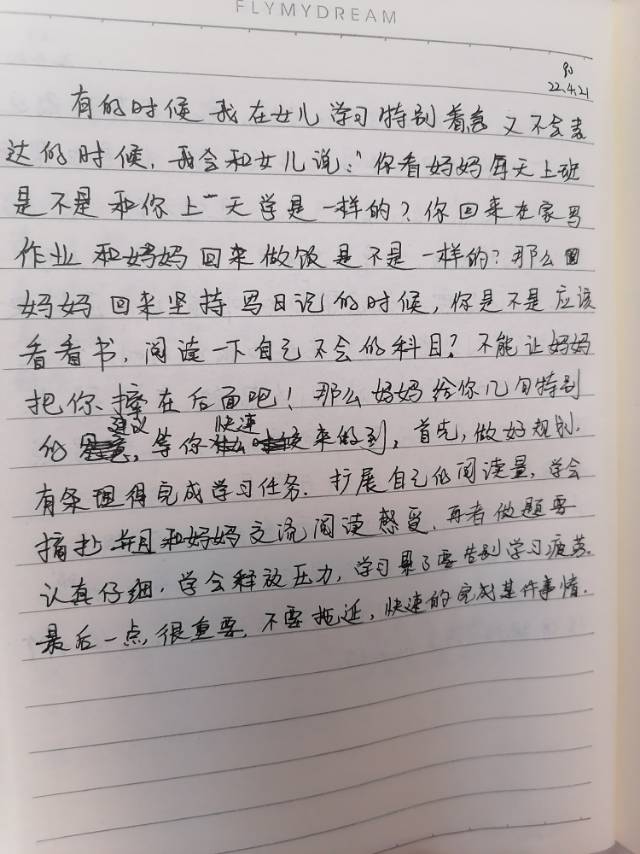 FLYMYDREAM
22.4.21
有的时候我在女儿学习特别着急又不会表
达的时候，我会和女儿说："你看妈妈每天上班
是不是和你上一天学是一样的？你回来在家写
作业和妈妈回来做饭是不是一样的？那么
妈妈回来坚持写日记的时候，你是不是应该
看看书，阅读一下自己不会的科目？不能让妈妈
把你撵在后面吧！那么妈妈给你几句特别
的建议，等你快速来的到，首先，做好规划，
有条理得完成学习任务．扩展自己的阅读量，学会
摘抄并且和妈妈交流阅读感受，再者做题要
认真仔细，学会释放压力，学习累了要告别学习疲劳．
最后一点，很重要，不要拖延，快速的完成某件事情．